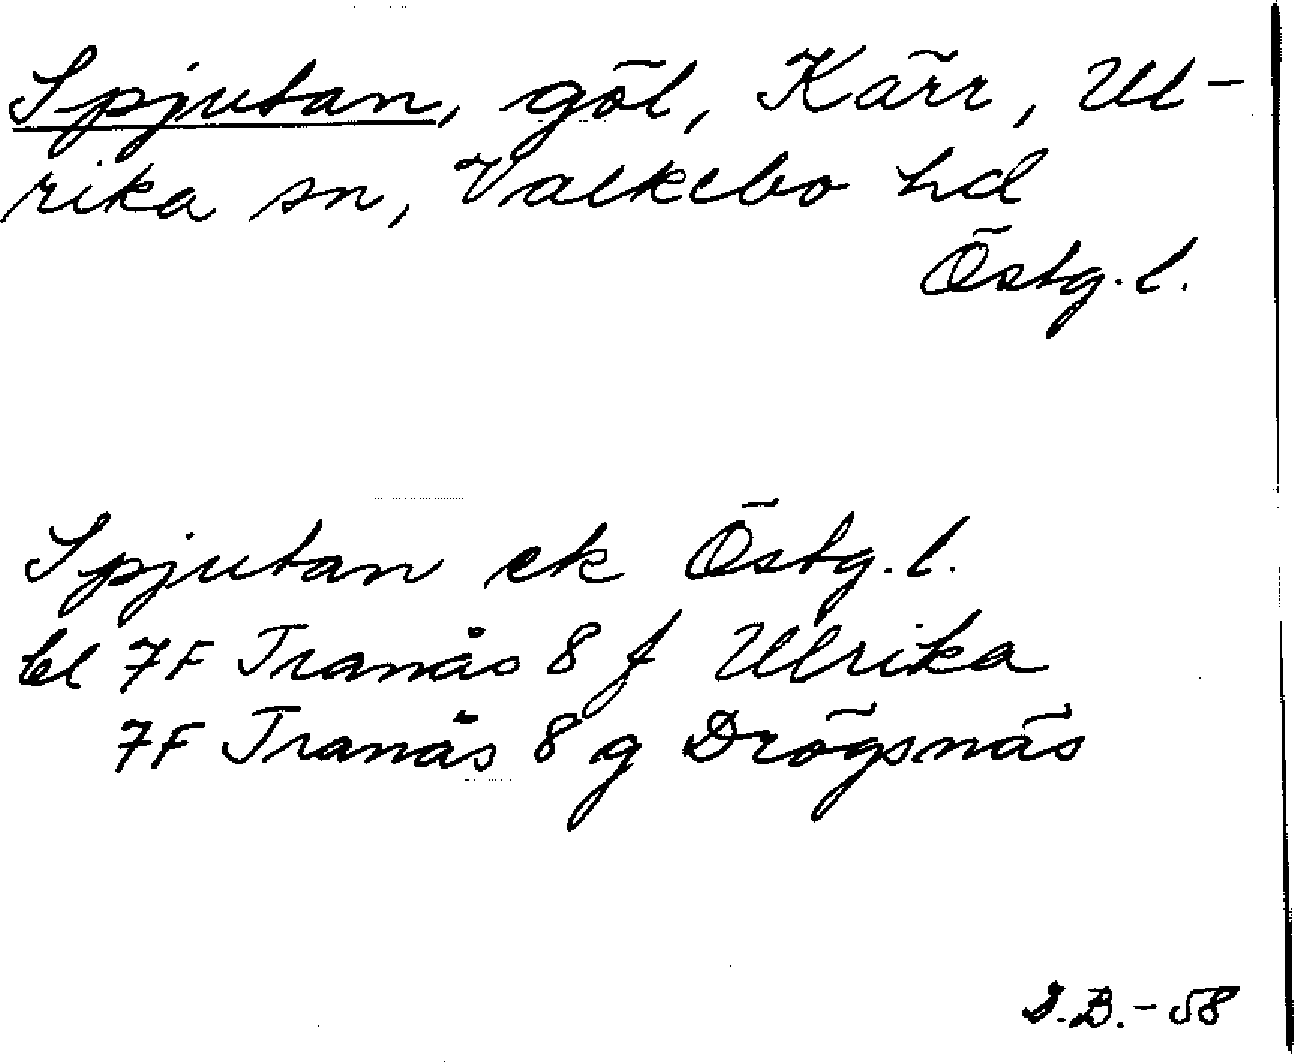 Spjutan, göl, Kärr, Ul-
rika sn, Valkebo hd
Östg. l.
Spjutan ek Östg. l.
bl 7F Tranås 8 f Ulrika
7F Tranås 8 g Drögsnäs
I.B. - 58